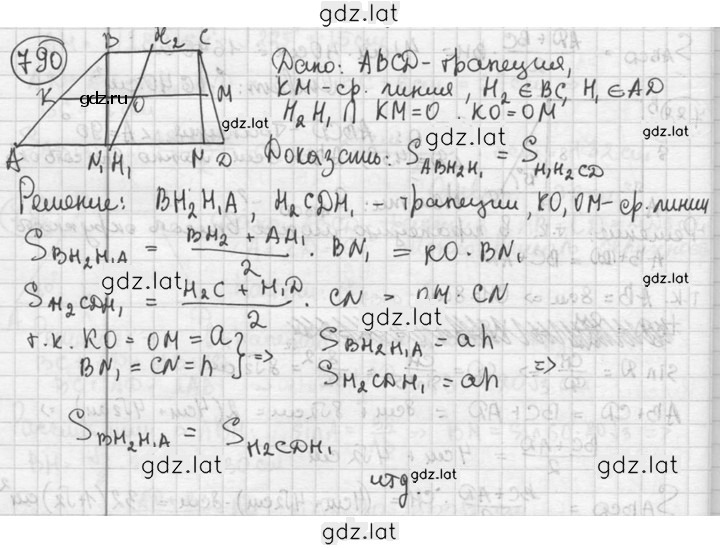 gdz.lat
790
B H₂ C
K O M
A N₁ H₁ N D
gdz.ru
gdz.lat
Дано: ABCD - трапеция,
KM - ср. линия, H₂ ∈ BC, H₁ ∈ AD
H₂H₁ ∩ KM = O . KO = OM
gdz.lat
Доказать: S_ABH₂H₁ = S_H₁H₂CD
Решение: BH₂H₁A, H₂CDH₁ - трапеции, KO, OM - ср. линии
S_BH₂H₁A = (BH₂ + AH₁)/2 · BN₁ = KO · BN₁
gdz.lat gdz.lat
S_H₂CDH₁ = (H₂C + H₁D)/2 · CN = OM · CN
gdz.lat
т.к. KO = OM = a
BN₁ = CN = h } =>
S_BH₂H₁A = ah
S_H₂CDH₁ = ah =>
S_BH₂H₁A = S_H₂CDH₁
gdz.lat gdz.lat gdz.lat
итд.
gdz.lat